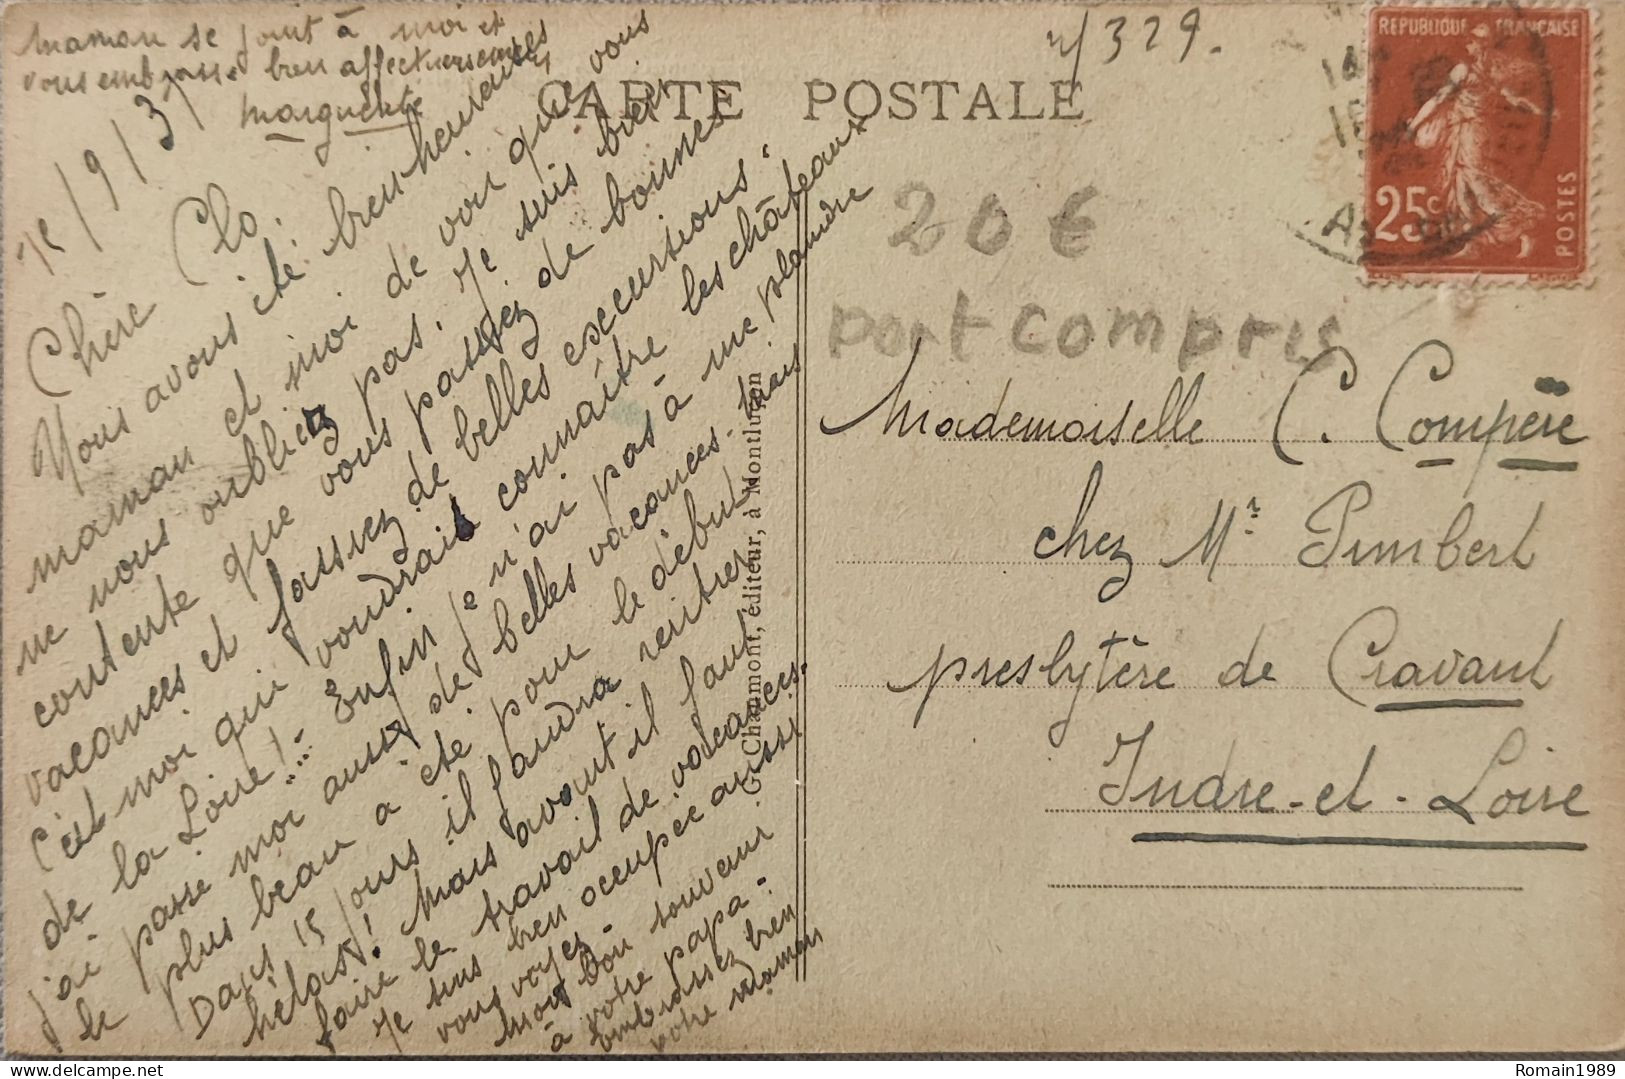 maman se joint à moi et
vous embrasse bien affectueusement
marguerite
CARTE POSTALE
329.
REPUBLIQUE FRANÇAISE
25c
POSTES
20 €
port compris
/9/31
Chère Clo.
Nous avons été bienheureuses
maman et moi de voir que vous
ne nous oubliez pas. Je suis bien
contente que vous passez de bonnes
vacances et fassiez de belles excursions.
C'est moi qui voudrais connaître les châteaux
de la Loire!... Enfin je n'ai pas à me plaindre
j'ai passé moi aussi de belles vacances. mais
le plus beau a été pour le début
Dans 15 jours il faudra rentrer
hélas! Mais avant il faut
faire le travail de vacances.
Je suis bien occupée aussi
vous voyez.
mon bon souvenir
à votre papa.
embrassez bien
votre maman
G. Chaumont, éditeur, à Montluçon
Mademoiselle C. Compère
chez Mr Pimbert
presbytère de Cravant
Indre-et-Loire
Romain1989